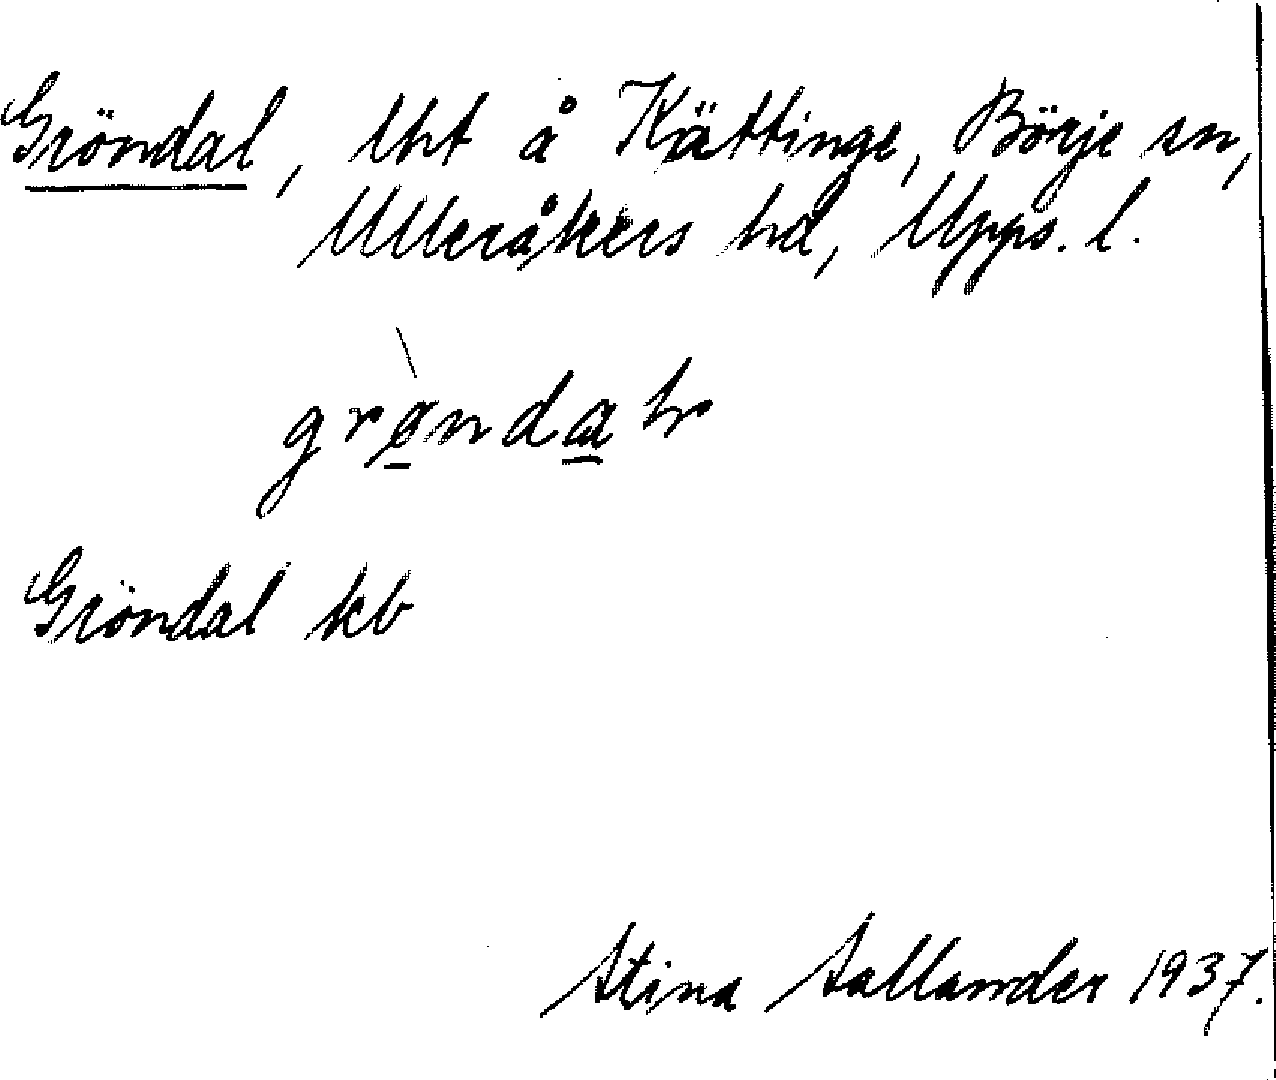 Gröndal, lht å Kättinge, Börje sn,
Ulleråkers hd, Upps. l.
Gröndal kb
Stina Sallander 1937.